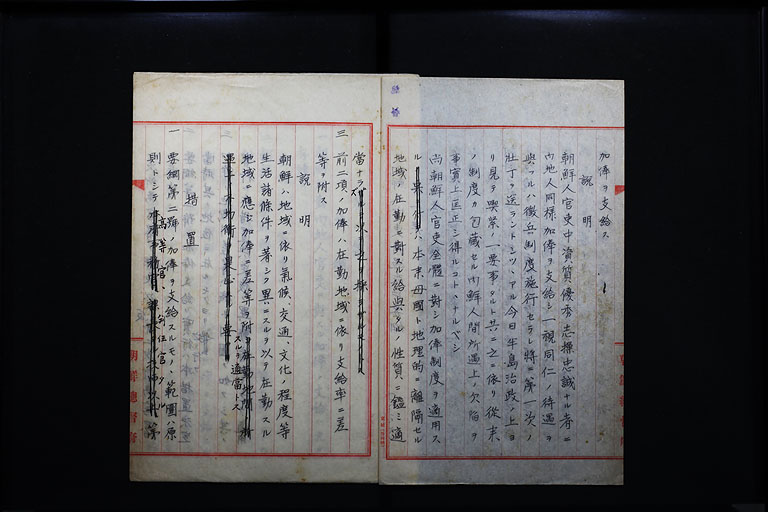 加俸ヲ支給ス
説明
朝鮮人官吏中資質優秀志操忠誠ナル者ニ
内地人同様加俸ヲ支給シ一視同仁ノ待遇ヲ
與フルハ徴兵制度施行セラレ將ニ第一次ノ
壮丁ヲ送ラントシツヽアル今日半島治政ノ上ヨ
リ見テ喫緊ノ一要事タルト共ニ之ニ依リ従来
ノ制度ガ包蔵セル内鮮人間所遇上ノ欠陥ヲ
事實上匡正シ得ルコトヽナルベシ
尚朝鮮人官吏全體ニ對シ加俸制度ヲ適用ス
ル
本来母國ト地理的ニ離隔セル
地域ノ在勤ニ對スル給與タルノ性質ニ鑑ミ適
當ナラズ
三 前二項ノ加俸ハ在勤地域ニ依リ支給率ニ差
等ヲ附ス
説明
朝鮮ハ地域ニ依リ氣候、交通、文化ノ程度等
生活諸條件ヲ著シク異ニスルヲ以テ在勤スル
地域ニ應ジ加俸ニ差等ヲ附
スルヲ適當トス
措置
一 要綱第二號ノ加俸ヲ支給スルモノヽ範圍ハ原
則トシテ
高等官、判任官
朝鮮總督府
朝鮮總督府